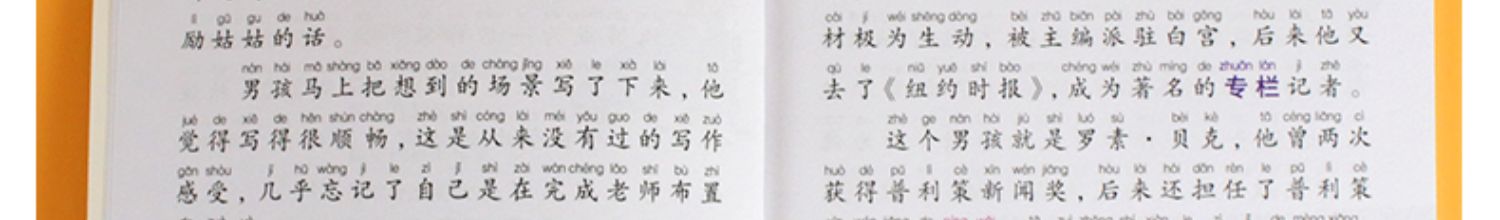 lì gū gu de huà
励姑姑的话。
nán hái mǎ shàng bǎ xiǎng dào de chǎng jǐng xiě le xià lái tā
男孩马上把想到的场景写了下来，他
jué de xiě de hěn shùn chàng zhè shì cóng lái méi yǒu guo de xiě zuò
觉得写得很顺畅，这是从来没有过的写作
gǎn shòu jī hū wàng jì le zì jǐ shì zài wán chéng lǎo shī bù zhì
感受，几乎忘记了自己是在完成老师布置
cái jí wéi shēng dòng bèi zhǔ biān pài zhù bái gōng hòu lái tā yòu
材极为生动，被主编派驻白宫，后来他又
qù le niǔ yuē shí bào chéng wéi zhù míng de zhuān lán jì zhě
去了《纽约时报》，成为著名的专栏记者。
zhè ge nán hái jiù shì luó sù bèi kè tā céng liǎng cì
这个男孩就是罗素·贝克，他曾两次
huò dé pǔ lì cè xīn wén jiǎng hòu lái hái dān rèn le pǔ lì cè
获得普利策新闻奖，后来还担任了普利策